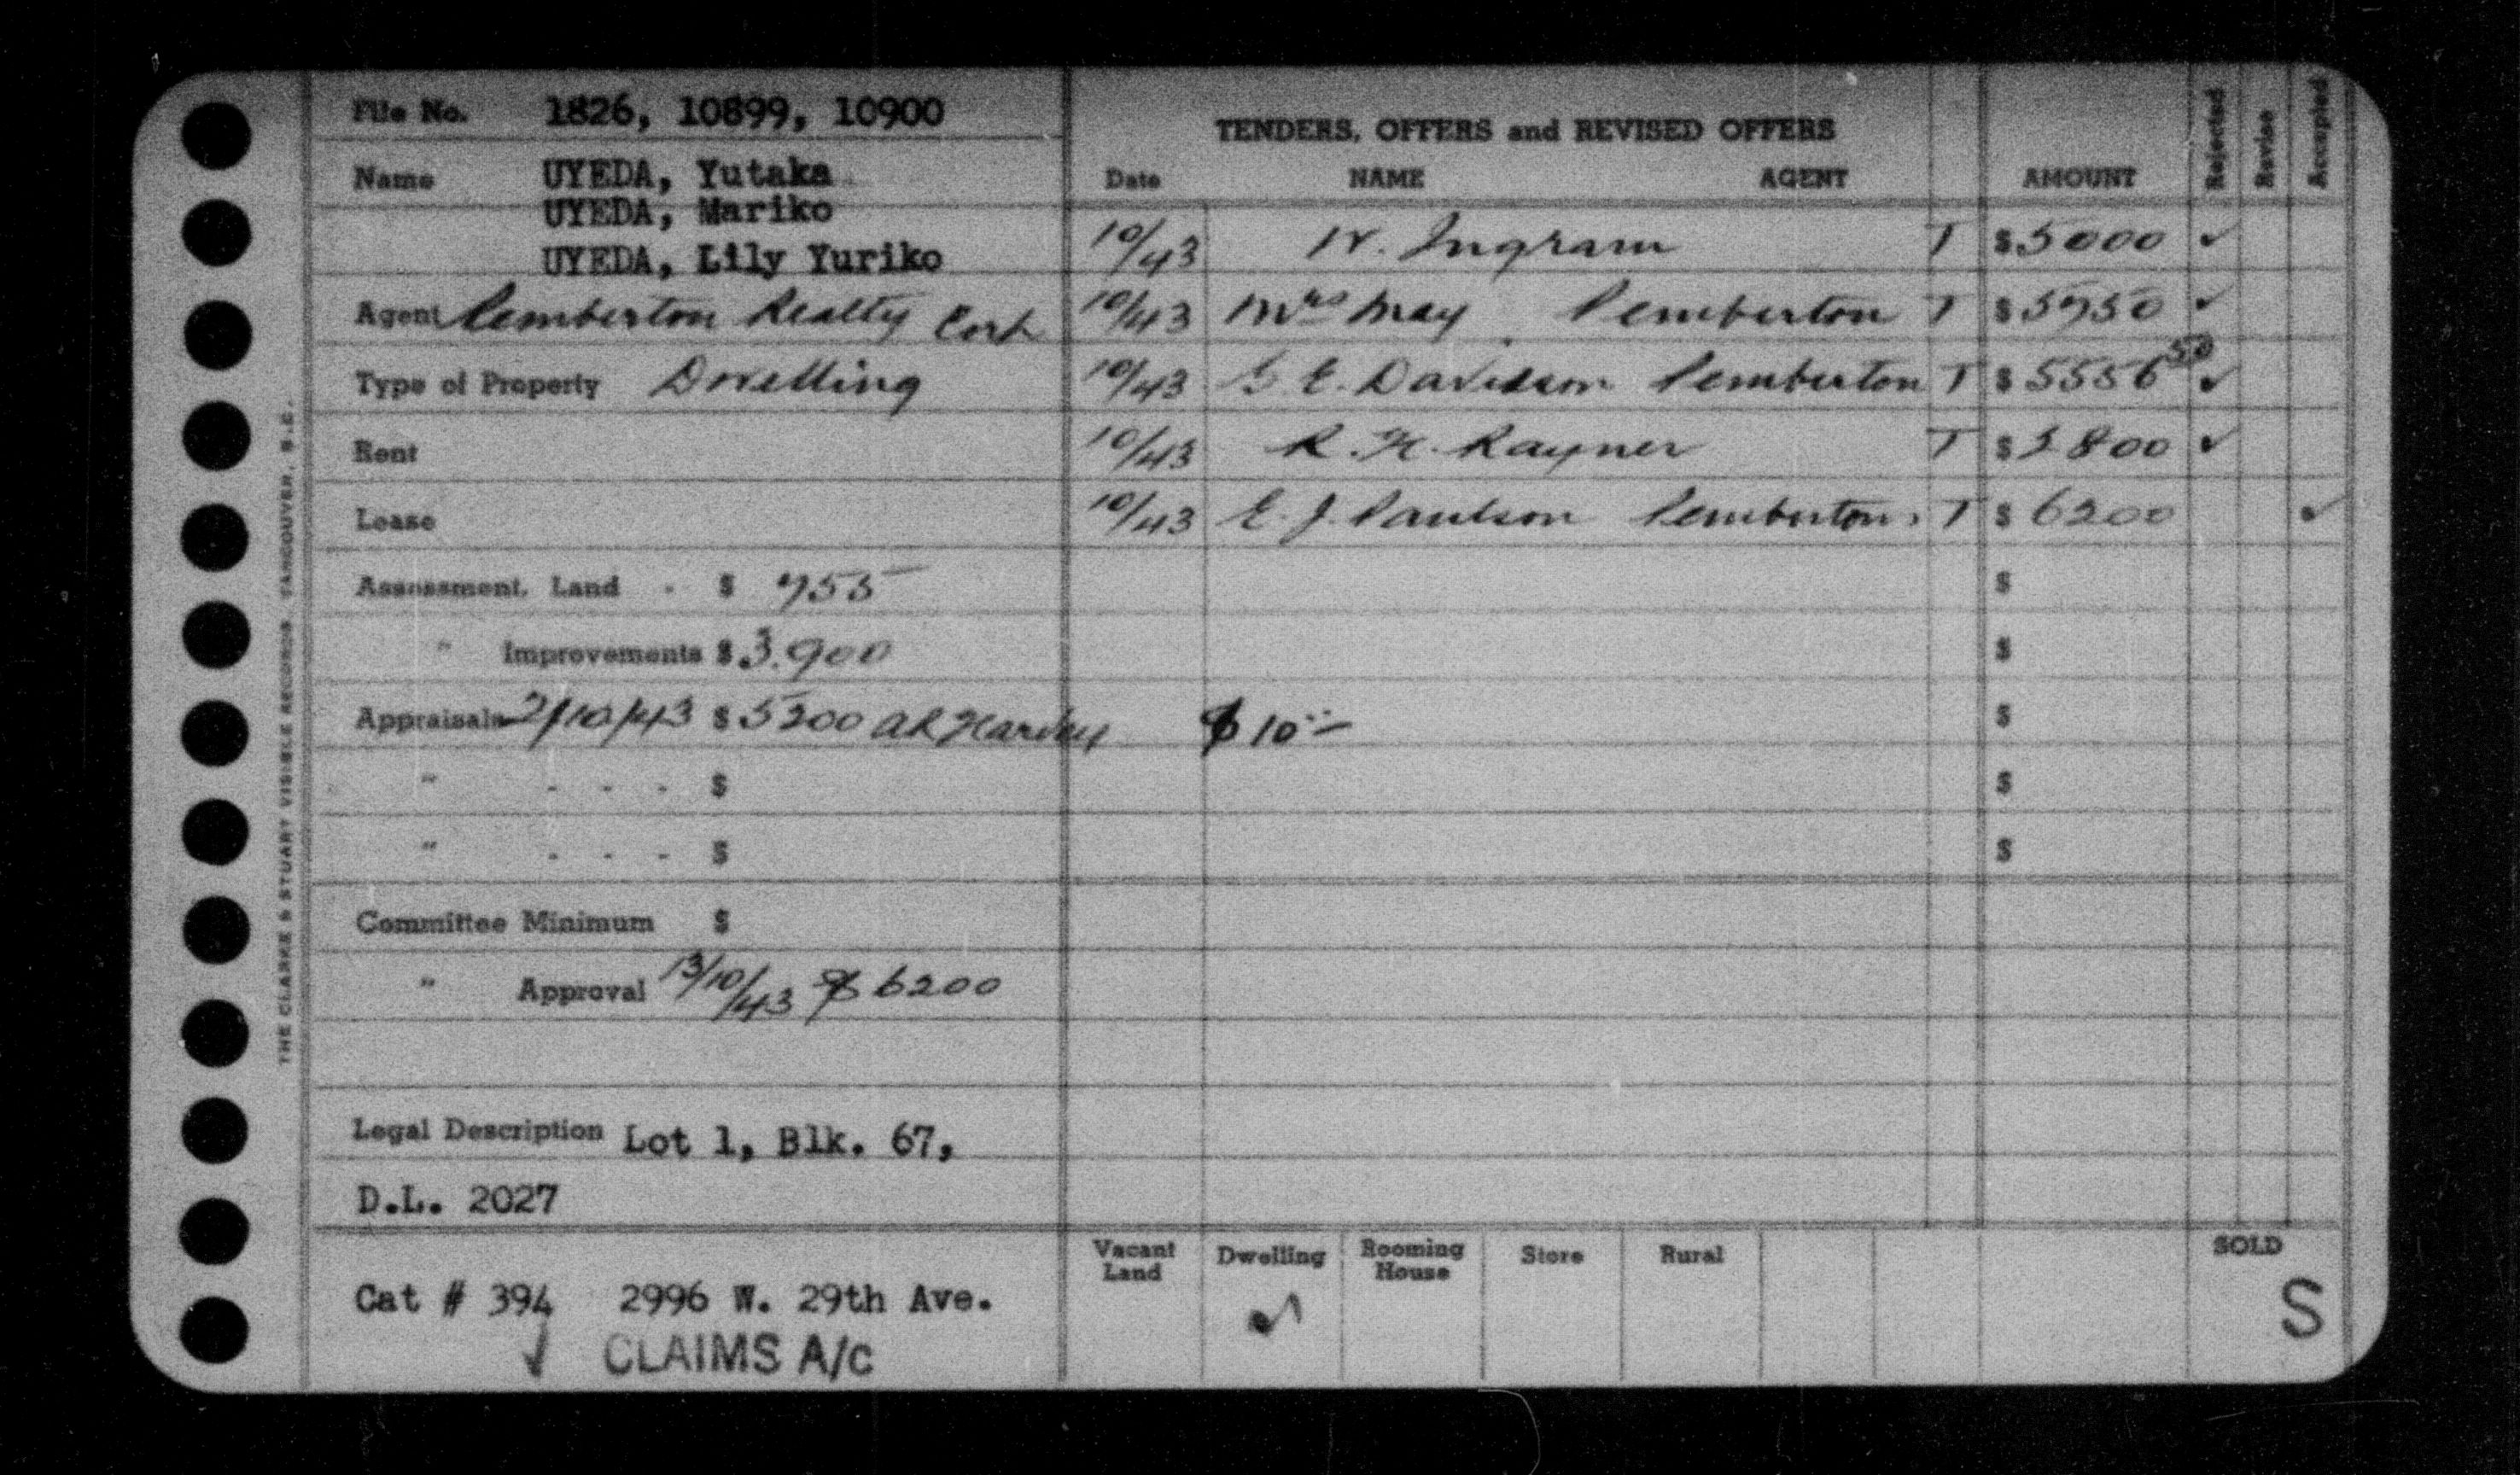 File No. 1826, 10899, 10900
Name UYEDA, Yutaka
UYEDA, Mariko
UYEDA, Lily Yuriko
Agent Pemberton Realty Corp
Type of Property Dwelling
Rent
Lease
Assessment, Land - $ 755
" Improvements $ 3.900
Appraisals 2/10/43 $ 5200 A R Harvey $ 10
" - - - $
" - - - $
Committee Minimum $
" Approval 13/10/43 $ 6200
Legal Description Lot 1, Blk. 67,
D.L. 2027
Cat # 394 2996 W. 29th Ave.
CLAIMS A/C
THE CLARKE & STUART VISIBLE RECORDS. VANCOUVER, B.C.
TENDERS, OFFERS and REVISED OFFERS
Date NAME AGENT AMOUNT Rejected Revise Accepted
10/43 Ingram T $ 5000 ✓
10/43 Mrs May Pemberton T $ ✓
10/43 E. Davidson Pemberton T $ 5556 50 ✓
10/43 R. H. Rayner T $ ✓
10/43 E. J. Paulson Pemberton T $ 6200 ✓
$
$
$
$
$
Vacant Land Dwelling Rooming House Store Rural SOLD
✓ S